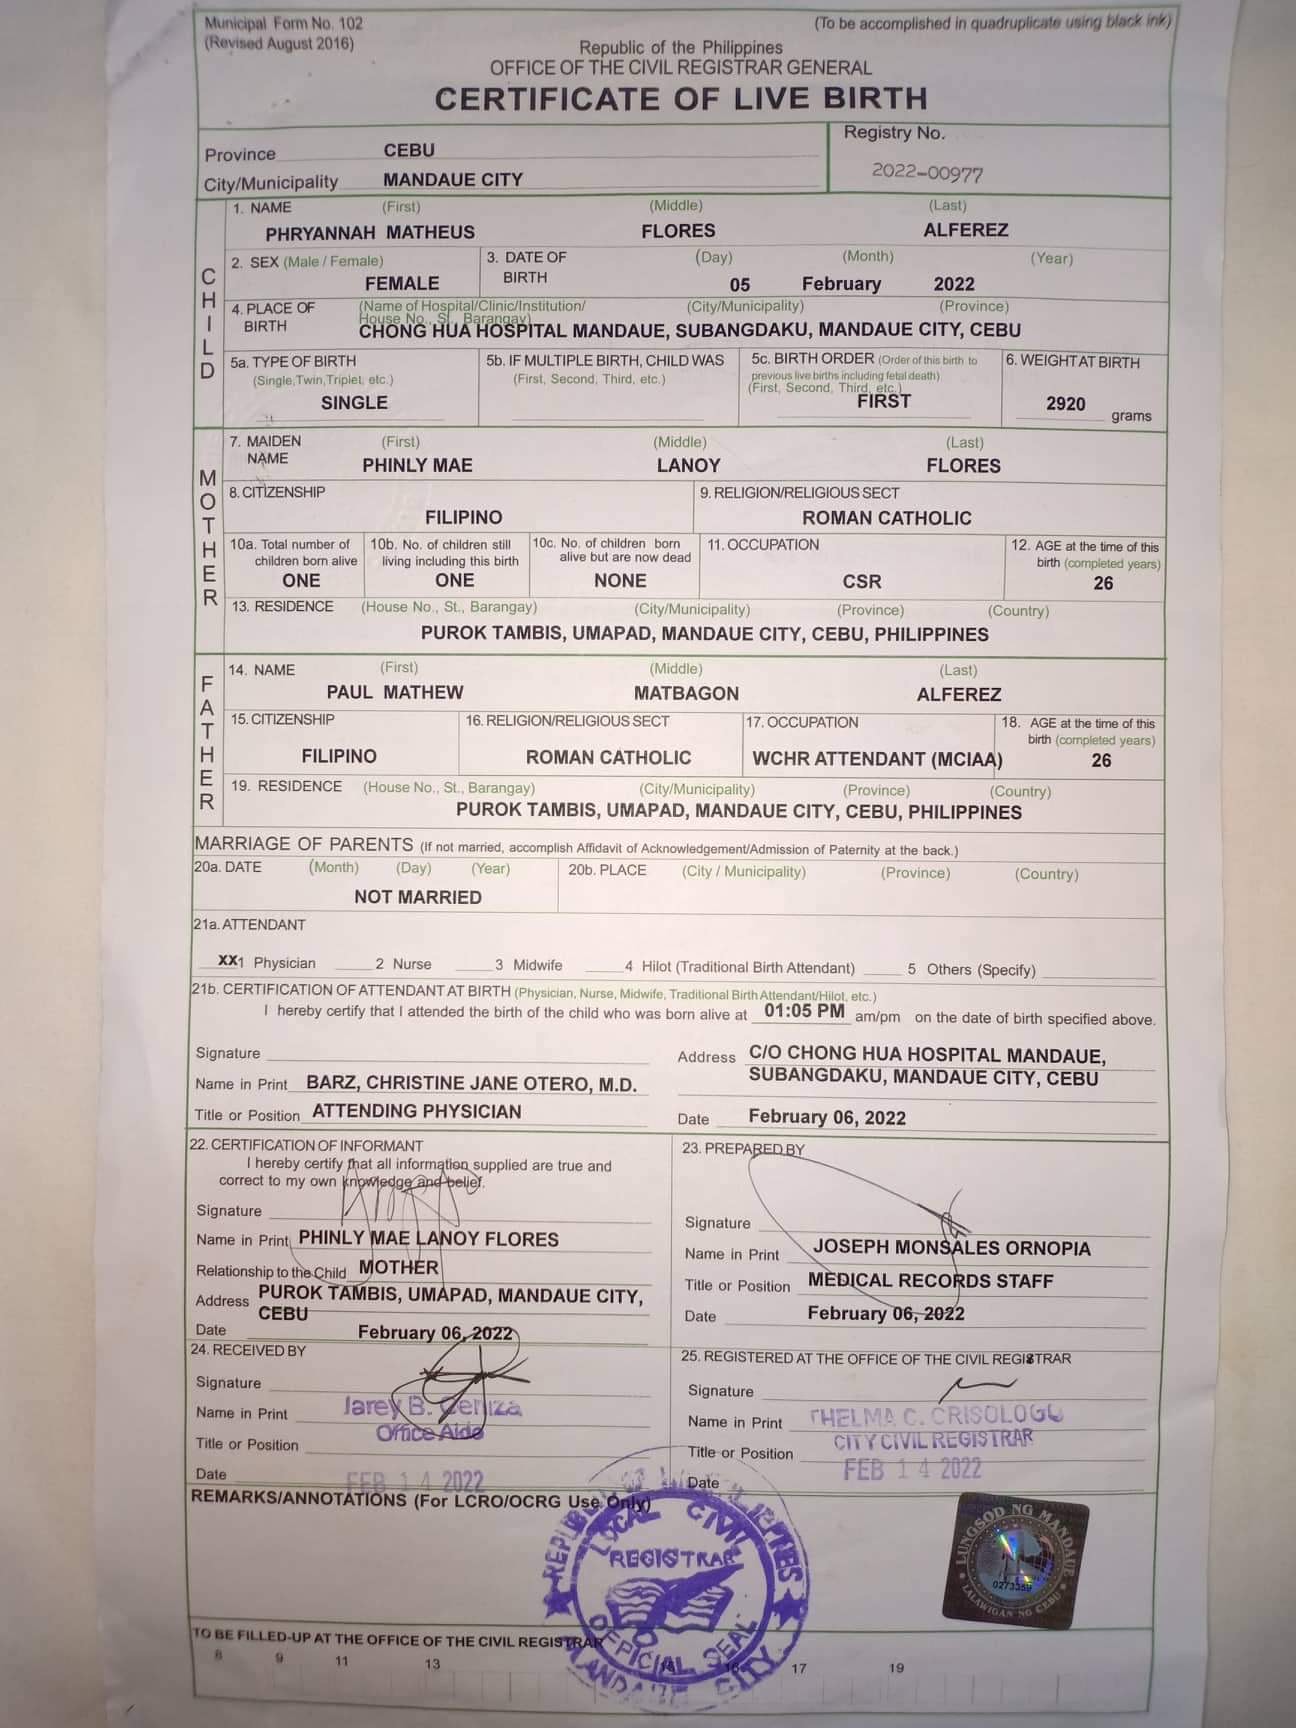 Municipal Form No. 102
(Revised August 2016)
(To be accomplished in quadruplicate using black ink)
Republic of the Philippines
OFFICE OF THE CIVIL REGISTRAR GENERAL
CERTIFICATE OF LIVE BIRTH
Province CEBU
Registry No.
2022-00977
City/Municipality MANDAUE CITY
CHILD
1. NAME (First) (Middle) (Last)
PHRYANNAH MATHEUS FLORES ALFEREZ
2. SEX (Male / Female)
FEMALE
3. DATE OF BIRTH (Day) (Month) (Year)
05 February 2022
4. PLACE OF BIRTH (Name of Hospital/Clinic/Institution/ (City/Municipality) (Province)
House No., St., Barangay)
CHONG HUA HOSPITAL MANDAUE, SUBANGDAKU, MANDAUE CITY, CEBU
5a. TYPE OF BIRTH
(Single,Twin,Triplet, etc.)
SINGLE
5b. IF MULTIPLE BIRTH, CHILD WAS
(First, Second, Third, etc.)
5c. BIRTH ORDER (Order of this birth to
previous live births including fetal death)
(First, Second, Third, etc.)
FIRST
6. WEIGHT AT BIRTH
2920
grams
MOTHER
7. MAIDEN NAME (First) (Middle) (Last)
PHINLY MAE LANOY FLORES
8. CITIZENSHIP
FILIPINO
9. RELIGION/RELIGIOUS SECT
ROMAN CATHOLIC
10a. Total number of
children born alive
ONE
10b. No. of children still
living including this birth
ONE
10c. No. of children born
alive but are now dead
NONE
11. OCCUPATION
CSR
12. AGE at the time of this
birth (completed years)
26
13. RESIDENCE (House No., St., Barangay) (City/Municipality) (Province) (Country)
PUROK TAMBIS, UMAPAD, MANDAUE CITY, CEBU, PHILIPPINES
FATHER
14. NAME (First) (Middle) (Last)
PAUL MATHEW MATBAGON ALFEREZ
15. CITIZENSHIP
FILIPINO
16. RELIGION/RELIGIOUS SECT
ROMAN CATHOLIC
17. OCCUPATION
WCHR ATTENDANT (MCIAA)
18. AGE at the time of this
birth (completed years)
26
19. RESIDENCE (House No., St., Barangay) (City/Municipality) (Province) (Country)
PUROK TAMBIS, UMAPAD, MANDAUE CITY, CEBU, PHILIPPINES
MARRIAGE OF PARENTS (If not married, accomplish Affidavit of Acknowledgement/Admission of Paternity at the back.)
20a. DATE (Month) (Day) (Year)
NOT MARRIED
20b. PLACE (City / Municipality) (Province) (Country)
21a. ATTENDANT
XX1 Physician 2 Nurse 3 Midwife 4 Hilot (Traditional Birth Attendant) 5 Others (Specify)
21b. CERTIFICATION OF ATTENDANT AT BIRTH (Physician, Nurse, Midwife, Traditional Birth Attendant/Hilot, etc.)
I hereby certify that I attended the birth of the child who was born alive at 01:05 PM am/pm on the date of birth specified above.
Signature
Name in Print BARZ, CHRISTINE JANE OTERO, M.D.
Title or Position ATTENDING PHYSICIAN
Address C/O CHONG HUA HOSPITAL MANDAUE,
SUBANGDAKU, MANDAUE CITY, CEBU
Date February 06, 2022
22. CERTIFICATION OF INFORMANT
I hereby certify that all information supplied are true and
correct to my own knowledge and belief.
Signature
Name in Print PHINLY MAE LANOY FLORES
Relationship to the Child MOTHER
Address PUROK TAMBIS, UMAPAD, MANDAUE CITY,
CEBU
Date February 06, 2022
23. PREPARED BY
Signature
Name in Print JOSEPH MONSALES ORNOPIA
Title or Position MEDICAL RECORDS STAFF
Date February 06, 2022
24. RECEIVED BY
Signature
Name in Print Jarey B. Ceniza
Title or Position Office Aide
Date FEB 14 2022
25. REGISTERED AT THE OFFICE OF THE CIVIL REGISTRAR
Signature
Name in Print THELMA C. CRISOLOGO
Title or Position CITY CIVIL REGISTRAR
Date FEB 14 2022
REMARKS/ANNOTATIONS (For LCRO/OCRG Use Only)
REPUBLIC OF THE PHILIPPINES
LOCAL CIVIL
REGISTRAR
OFFICIAL SEAL
MANDAUE CITY
LUNGSOD NG MANDAUE
0273359
LALAWIGAN NG CEBU
TO BE FILLED-UP AT THE OFFICE OF THE CIVIL REGISTRAR
8 9 11 13 15 16 17 19